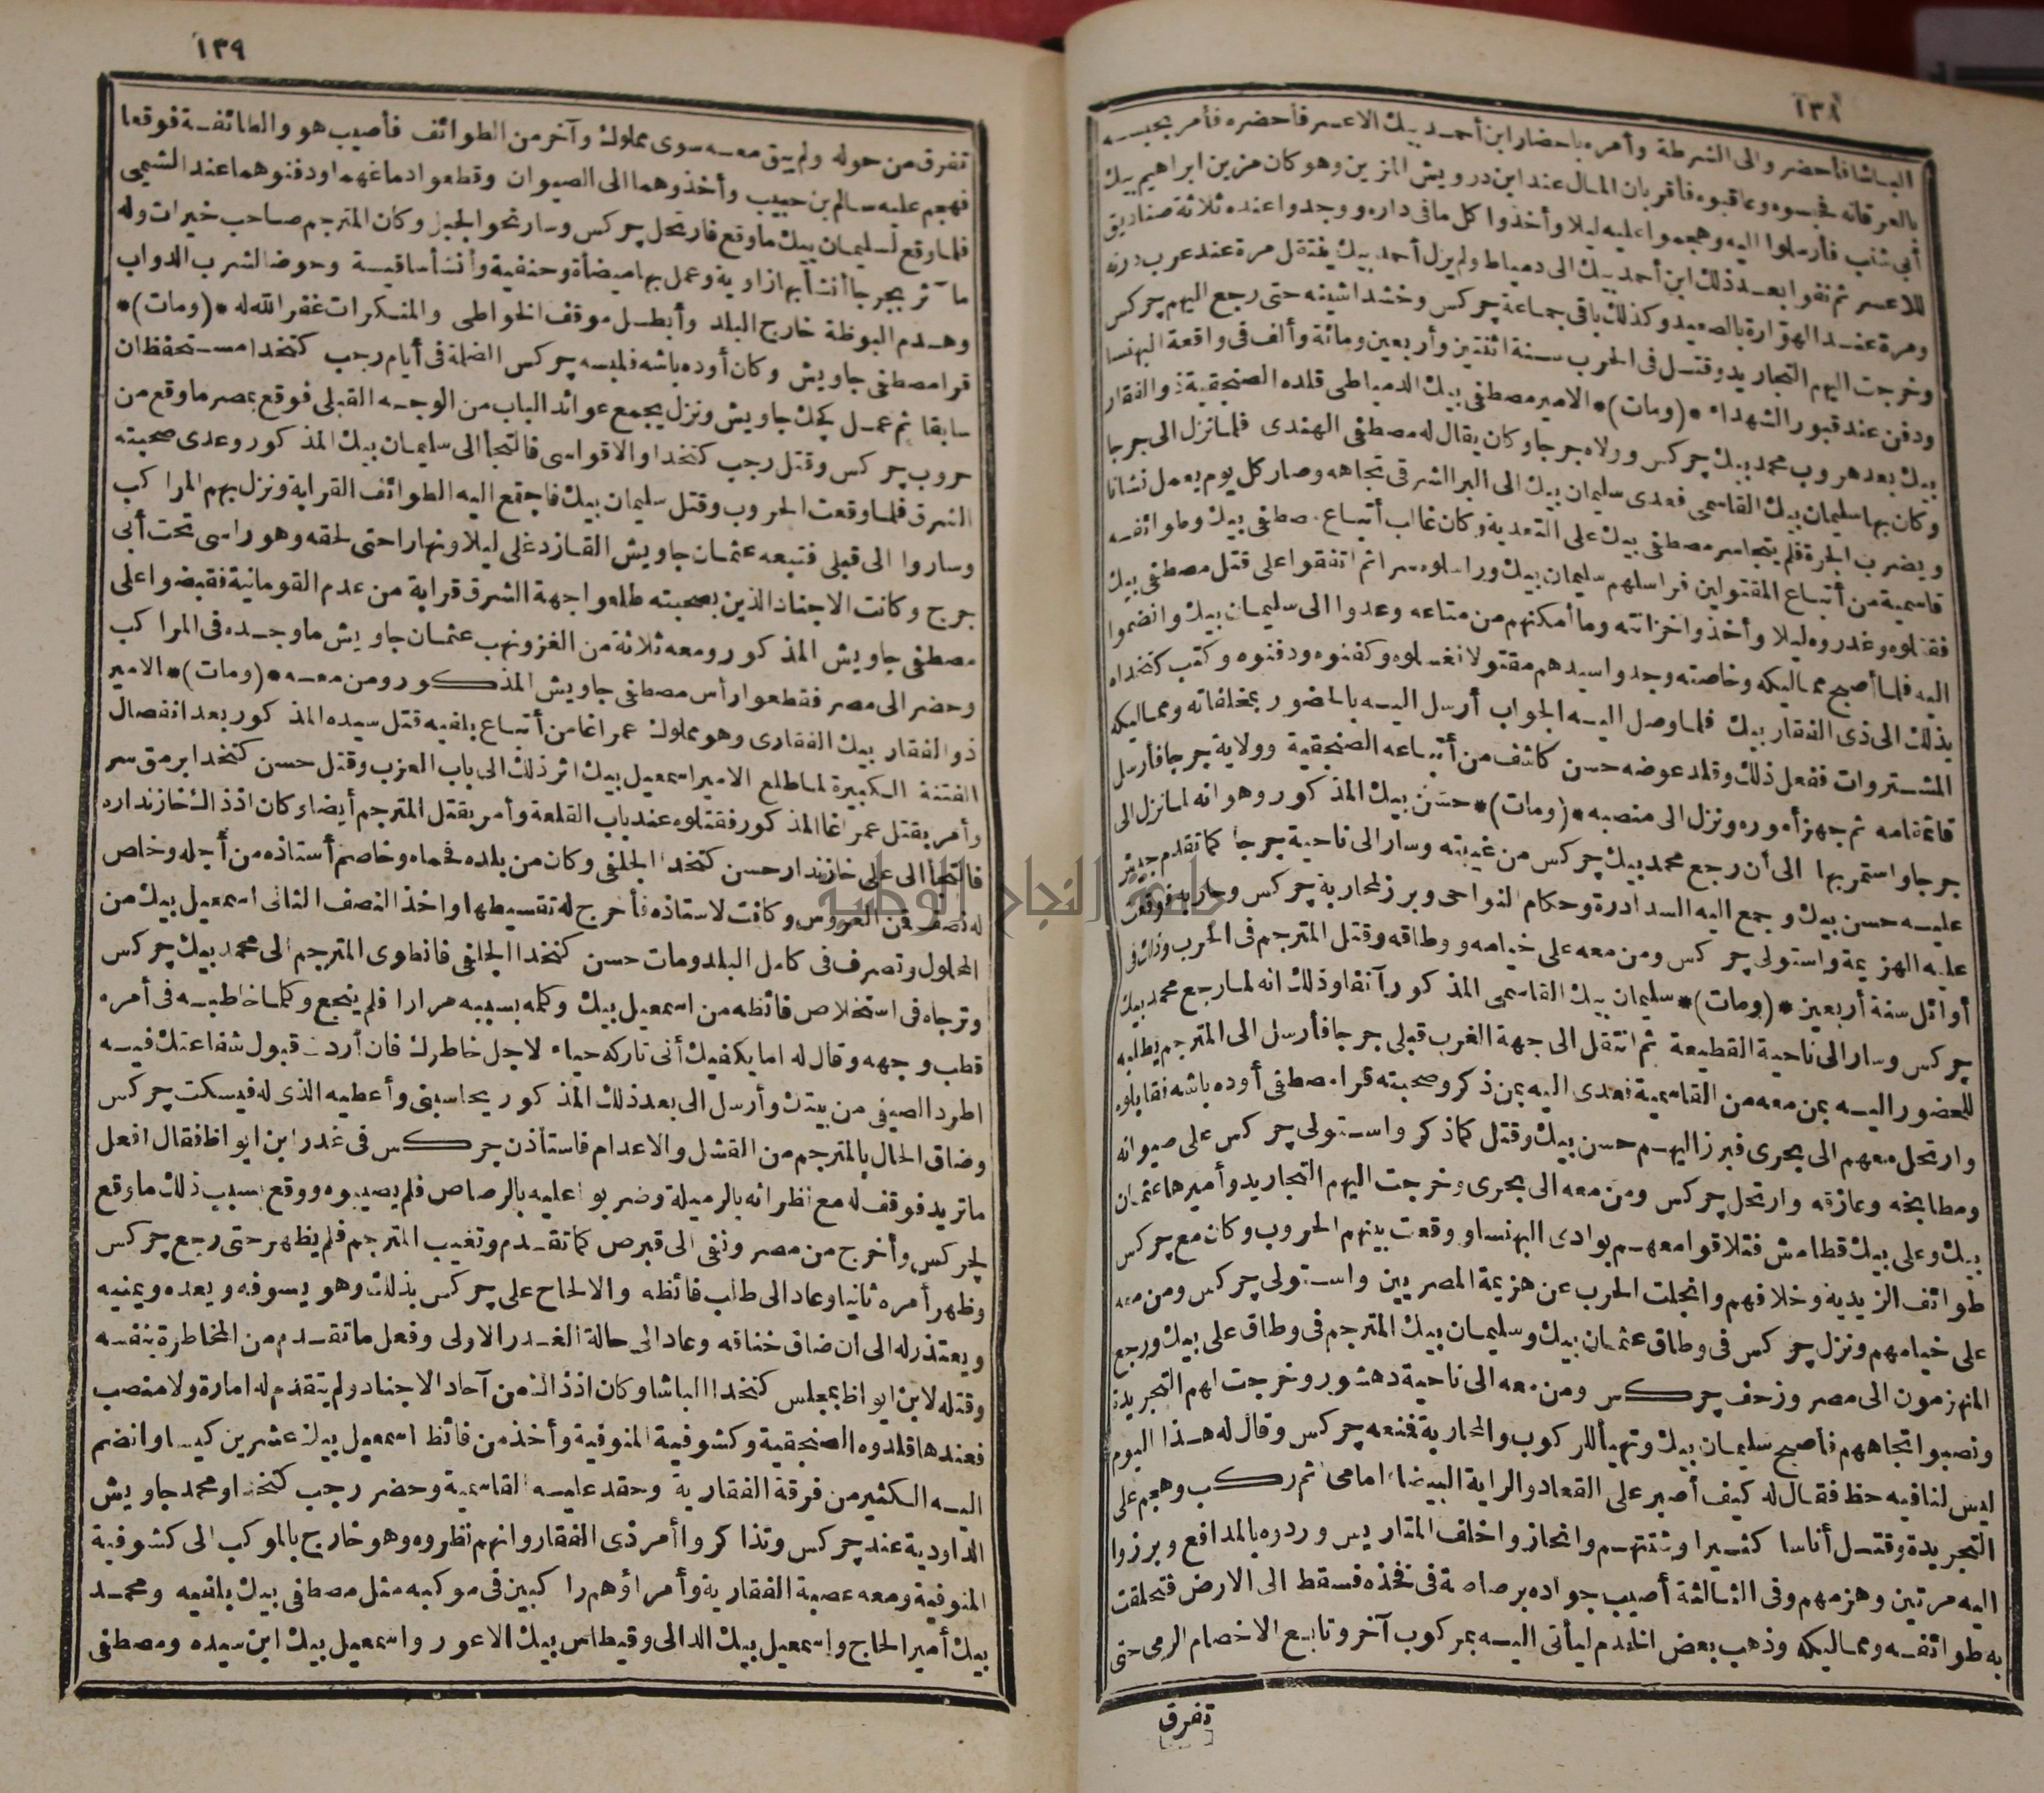 ١٣٨
الباشا فأحضر والى الشرطة وأمره باحضار ابن أحمد بيك الاعسر فأحضره فأمر بحبسه
بالعرقانه فحبسوه وعاقبوه فأقر بان المال عند ابن درويش المزين وهو كان مزين ابراهيم بيك
أبى شنب فأرسلوا اليه وهجموا عليه ليلا وأخذوا كل مافى داره ووجدوا عنده ثلاثة صناديق
للاعسر ثم نفوا بعد ذلك ابن أحمد بيك الى دمياط ولم يزل أحمد بيك يتنقل مرة عند عرب درنه
ومرة عند الهوّارة بالصعيد وكذلك باقى جماعة چركس وخشداشينه حتى رجع اليهم چركس
وخرجت اليهم التجاريد وقتل فى الحرب سنة اثنتين وأربعين ومائة وألف فى واقعة البهنسا
ودفن عند قبور الشهداء *(ومات)* الامير مصطفى بيك الدمياطى قلده الصنجقية ذو الفقار
بيك بعد هروب محمد بيك چركس وولاه جرجا وكان يقال له مصطفى الهندى فلما نزل الى جرجا
وكان بها سليمان بيك القاسمى فعدى سليمان بيك الى البر الشرقى تجاهه وصار كل يوم يعمل نشانا
ويضرب الجرة فلم يتجاسر مصطفى بيك على التعدية وكان غالب أتباع مصطفى بيك وطوائفه
قاسمية من أتباع المقتولين فراسلهم سليمان بيك وراسلوه سرا ثم اتفقوا على قتل مصطفى بيك
فقتلوه وغدروه ليلا وأخذوا خزانته وما أمكنهم من متاعه وعدوا الى سليمان بيك وانضموا
اليه فلما أصبح مماليكه وخاصته وجدوا سيدهم مقتولا فغسلوه وكفنوه ودفنوه وكتب كتخداه
بذلك الى ذى الفقار بيك فلما وصل اليه الجواب أرسل اليه بالحضور بمخلفاته ومماليكه
المشتروات ففعل ذلك وقلد عوضه حسن كاشف من أتباعه الصنجقية وولاية جرجا فأرسل
قائمقامه ثم جهز أموره ونزل الى منصبه *(ومات)* حسن بيك المذكور وهو انه لما نزل الى
جرجا واستمر بها الى أن رجع محمد بيك چركس من غيبته وسار الى ناحية جرجا كما تقدم
عليه حسن بيك وجمع اليه السدادرة وحكام النواحى وبرز لمحاربة چركس وحاربه فوقعت
عليه الهزيمة واستولى چركس ومن معه على خيامه ووطاقه وقتل المترجم فى الحرب وذلك فى
أوائل سنة أربعين *(ومات)* سليمان بيك القاسمى المذكور آنفا وذلك انه لما رجع محمد بيك
چركس وسار الى ناحية القطيعة ثم انتقل الى جهة الغرب قبلى جرجا فأرسل الى المترجم يطلبه
للحضور اليه بمن معه من القاسمية فعدى اليه بمن ذكر وصحبته قرا مصطفى أوده باشه فقابلوه
وارتحل معهم الى بحرى فبرز اليهم حسن بيك وقتل كما ذكر واستولى چركس على صيوانه
ومطابخه وعازقه وارتحل چركس ومن معه الى بحرى وخرجت اليهم التجاريد وأميرها عثمان
بيك وعلى بيك قطامش فتلاقوا معهم بوادى البهنسا ووقعت بينهم الحروب وكان مع چركس
طوائف الزيدية وخلافهم وانجلت الحرب عن هزيمة المصريين واستولى چركس ومن معه
على خيامهم ونزل چركس فى وطاق عثمان بيك وسليمان بيك المترجم فى وطاق على بيك ورجع
المنهزمون الى مصر وزحف چركس ومن معه الى ناحية دهشور وخرجت لهم التجريدة
ونصبوا تجاههم فأصبح سليمان بيك وتهيأ للركوب والمحاربة فمنعه چركس وقال له هذا اليوم
ليس لنا فيه حظ فقال له كيف أصبر على القعاد والراية البيضاء امامى ثم ركب وهجم على
التجريدة وقتل أناسا كثيرا وشتتهم وانحازوا خلف المتاريس وردوه بالمدافع وبرزوا
اليه مرتين وهزمهم وفى الثالثة أصيب جواده برصاصة فى فخذه فسقط الى الارض فتحلقت
به طوائفه ومماليكه وذهب بعض الخدم ليأتى اليه بمركوب آخر وتابع الاخصام الرمى حتى
تفرق
١٣٩
تفرق من حوله ولم يبق معه سوى مملوك وآخر من الطوائف فأصيب هو والطائفة فوقعا
فهجم عليه سالم بن حبيب وأخذوهما الى الصيوان وقطعوا دماغهما ودفنوهما عند الشيمى
فلما وقع لسليمان بيك ما وقع فارتحل چركس وسار نحو الجبل وكان المترجم صاحب خيرات وله
مآثر بجرجا أنشأ بها زاوية وعمل بها ميضأة وحنفية وأنشأ ساقية وحوضا لشرب الدواب
وهدم البوظة خارج البلد وأبطل موقف الخواطى والمنكرات غفر الله له *(ومات)*
قرا مصطفى جاويش وكان أوده باشه فلبسه چركس الضلمة فى أيام رجب كتخدا مستحفظان
سابقا ثم عمل كجك جاويش ونزل يجمع عوائد الباب من الوجه القبلى فوقع بمصر ما وقع من
حروب چركس وقتل رجب كتخدا والاقواسى فالتجأ الى سليمان بيك المذكور وعدى صحبته
الشرق فلما وقعت الحروب وقتل سليمان بيك فاجتمع اليه الطوائف القرابة ونزل بهم المراكب
وساروا الى قبلى فتبعه عثمان جاويش القازدغلى ليلا ونهارا حتى لحقه وهو راسى تحت أبى
جرج وكانت الاجناد الذين بصحبته طلعوا جهة الشرق قرابة من عدم القومانية فقبضوا على
مصطفى جاويش المذكور ومعه ثلاثة من الغز ونهب عثمان جاويش ما وجده فى المراكب
وحضر الى مصر فقطعوا رأس مصطفى جاويش المذكور ومن معه *(ومات)* الامير
ذو الفقار بيك الفقارى وهو مملوك عمر اغا من أتباع بلفيه قتل سيده المذكور بعد انفصال
الفتنة الكبيرة لما طلع الامير اسمعيل بيك اثر ذلك الى باب العزب وقتل حسن كتخدا برمق سر
وأمر بقتل عمر اغا المذكور فقتلوه عند باب القلعة وأمر بقتل المترجم أيضا وكان اذذاك خازنداره
فالتجأ الى على خازندار حسن كتخدا الجلفى وكان من بلده فحماه وخاصم أستاذه من أجله وخلص
له نصف قن العروس وكانت لاستاذه فأخرج له تقسيطها واخذ النصف الثانى اسمعيل بيك من
المحلول وتصرف فى كامل البلد ومات حسن كتخدا الجلفى فانطوى المترجم الى محمد بيك چركس
وترجاه فى استخلاص فائظه من اسمعيل بيك وكلمه بسببه مرارا فلم ينجع وكلما خاطبه فى أمره
قطب وجهه وقال له اما يكفيك أنى تاركه حياء لاجل خاطرك فان أردت قبول شفاعتك فيه
اطرد الصيفى من بيتك وأرسل الى بعد ذلك المذكور يحاسبنى وأعطيه الذى له فيسكت چركس
وضاق الحال بالمترجم من القشل والاعدام فاستأذن چركس فى غدر ابن ايواظ فقال افعل
ماتريد فوقف له مع نظرائه بالرميلة وضربوا عليه بالرصاص فلم يصيبوه ووقع بسبب ذلك ما وقع
لچركس وأخرج من مصر ونفى الى قبرص كما تقدم وتغيب المترجم فلم يظهر حتى رجع چركس
وظهر أمره ثانيا وعاد الى طلب فائظه والالحاح على چركس بذلك وهو يسوفه ويعده ويمنيه
ويعتذر له الى ان ضاق خناقه وعاد الى حالة الغدر الاولى وفعل ما تقدم من المخاطرة بنفسه
وقتله لابن ايواظ بمجلس كتخدا الباشا وكان اذذاك من آحاد الاجناد ولم يتقدم له امارة ولا منصب
فعندها قلدوه الصنجقية وكشوفية المنوفية وأخذ من فائظ اسمعيل بيك عشرين كيسا وانضم
اليه الكثير من فرقة الفقارية وحقد عليه القاسمية وحضر رجب كتخدا ومحمد جاويش
الداودية عند چركس وتذاكروا أمر ذى الفقار وانهم نظروه وهو خارج بالموكب الى كشوفية
المنوفية ومعه عصبة الفقارية وأمراؤهم راكبين فى موكبه مثل مصطفى بيك بلفيه ومحمد
بيك أمير الحاج واسمعيل بيك الدالى وقيطاس بيك الاعور واسمعيل بيك ابن سيده ومصطفى